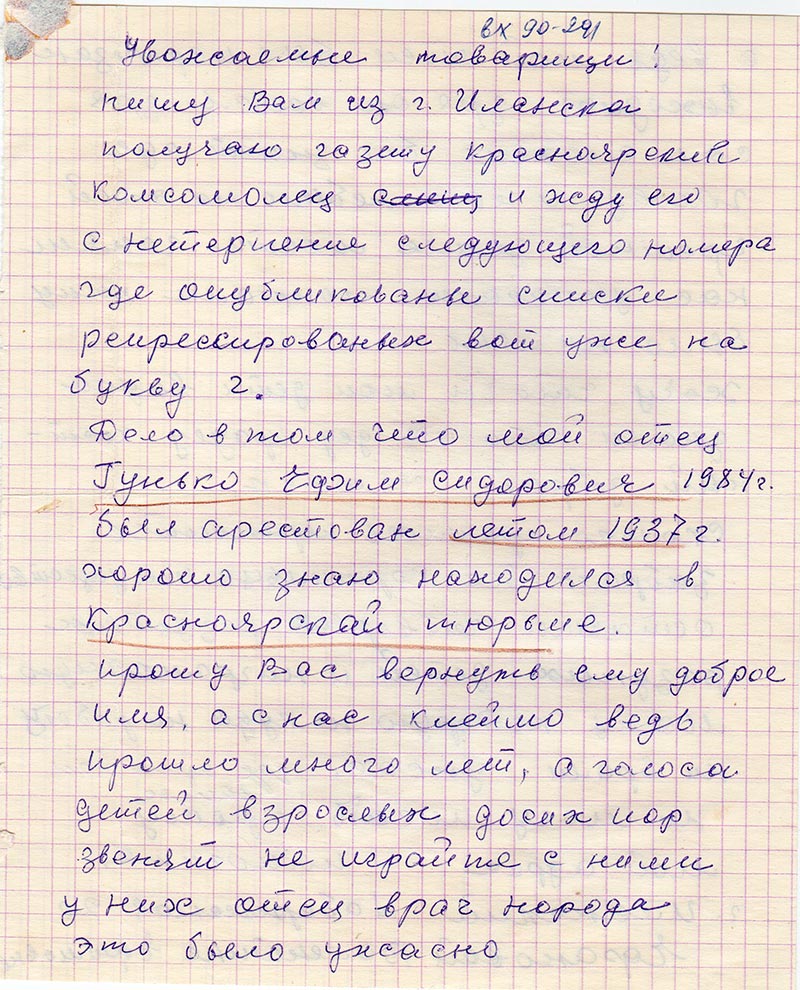 вх 90-291
Уважаемые товарищи!
пишу Вам из г. Иланска
получаю газету Красноярский
Комсомолец и жду его
с нетерпение следующего номера
где опубликованы списки
репрессированых вот уже на
букву г.
Дело в том что мой отец
Гунько Ефим Сидорович 1984г.
был арестован летом 1937г.
хорошо знаю находился в
Красноярскай тюрьме.
прошу Вас вернуть ему доброе
имя, а с нас клеймо ведь
прошло много лет, а голоса
детей взрослых досих пор
звенят не играйте с ними
у них отец врач народа
это было ужасно